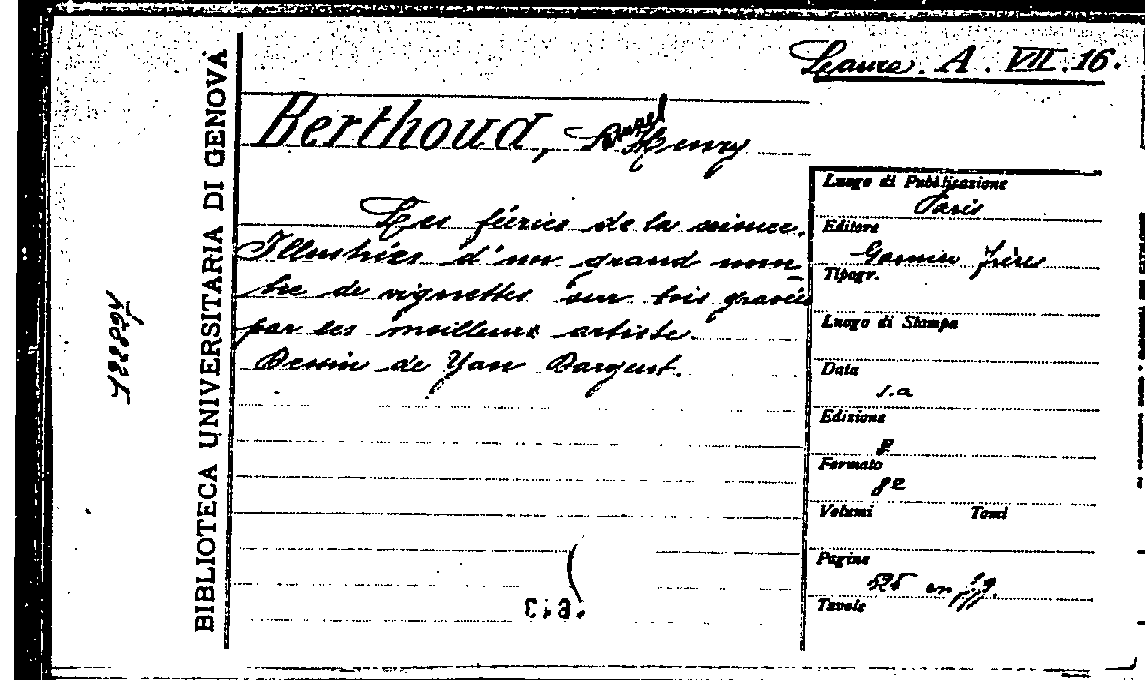 Laura. A. VII. 16.
BIBLIOTECA UNIVERSITARIA DI GENOVA
Berthoud, Henry
Les féeries de la science.
Illustrées d'un grand nom
bre de vignettes sur bois gravées
par les meilleurs artiste.
Dessin de Yan Dargent.
Luogo di Pubblicazione
Paris
Editore
Garnier frères
Tipogr.
Luogo di Stampa
Data
s.a
Edizione
Formato
8º
Volumi Tomi
Pagine
Tavole
c.a.